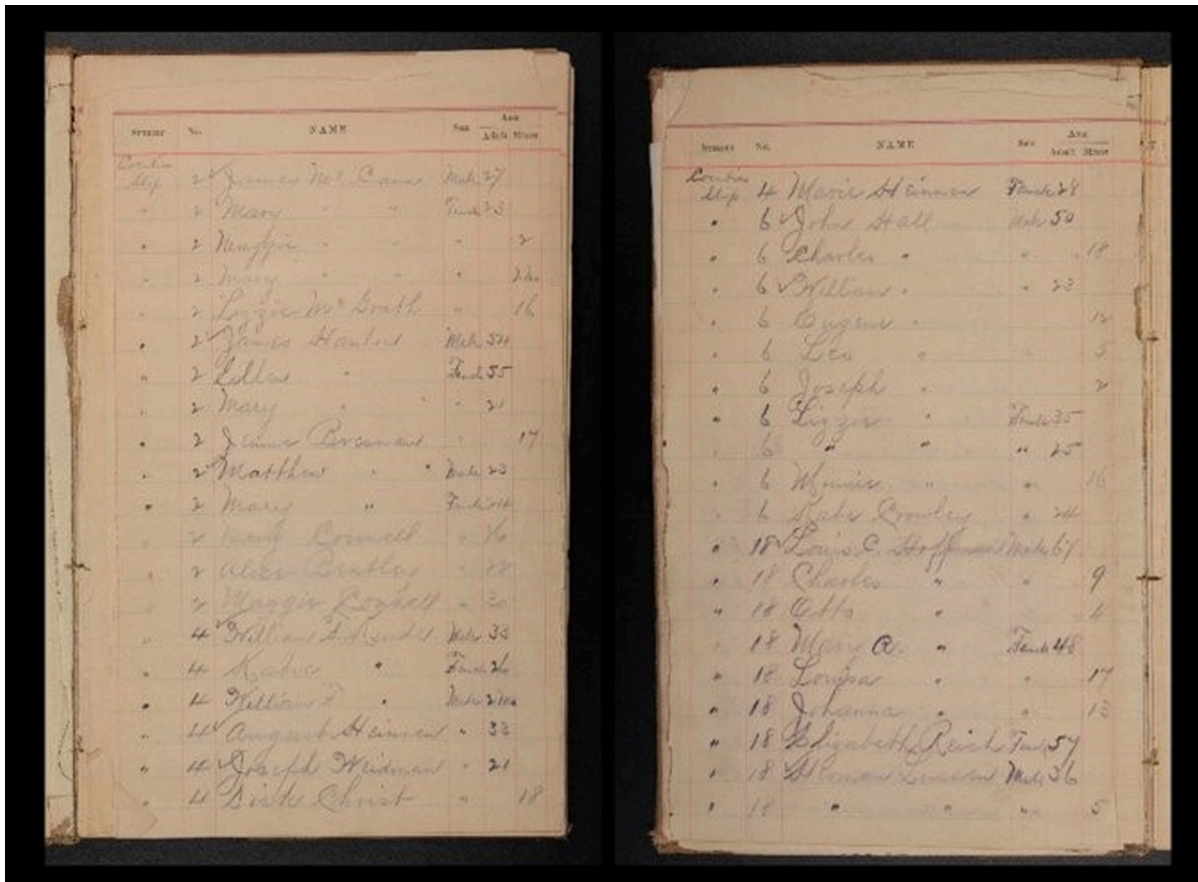 STREET No. NAME Sex Age
Adult Minor
Coenties
Slip 2 James McCann Male 27
" 2 Mary " " Female 23
" 2 Maggie " " " 2
" 2 Mary " " "
" 2 Lizzie McGrath " 16
" 2 James Hanlon Male 54
" 2 Ellen " Female 55
" 2 Mary " " " 21
" 2 Jennie Brosnan " 17
" 2 Matthew " " Male 23
" 2 Mary " Female 24
" 2 Mary Connell "
" 2 Alice "
" 2 Maggie "
" 4 William Male 33
" 4 Katie " Female 26
" 4 William F. " Male
" 4 August Heinnen " 33
" 4 Joseph Weidman " 21
" 4 Dick Christ " 18
STREET No. NAME Sex Age
Adult Minor
Coenties
Slip 4 Marie Heinnen Female 28
" 6 John Hall Male 50
" 6 Charles " " 18
" 6 William " " 23
" 6 Eugene " 12
" 6 Leo " " 5
" 6 Joseph " 2
" 6 Lizzie " Female 35
" 6 " " " 25
" 6 Winnie " " 16
" 6 Kate Crowley " 24
" 18 Louis C. Hoffman Male 67
" 18 Charles " " 9
" 18 Otto " 4
" 18 Mary A. " Female 48
" 18 Louisa " " 17
" 18 Johanna " " 13
" 18 Elizabeth Reich Fem 57
" 18 Herman Male 36
" 18 " " " 5